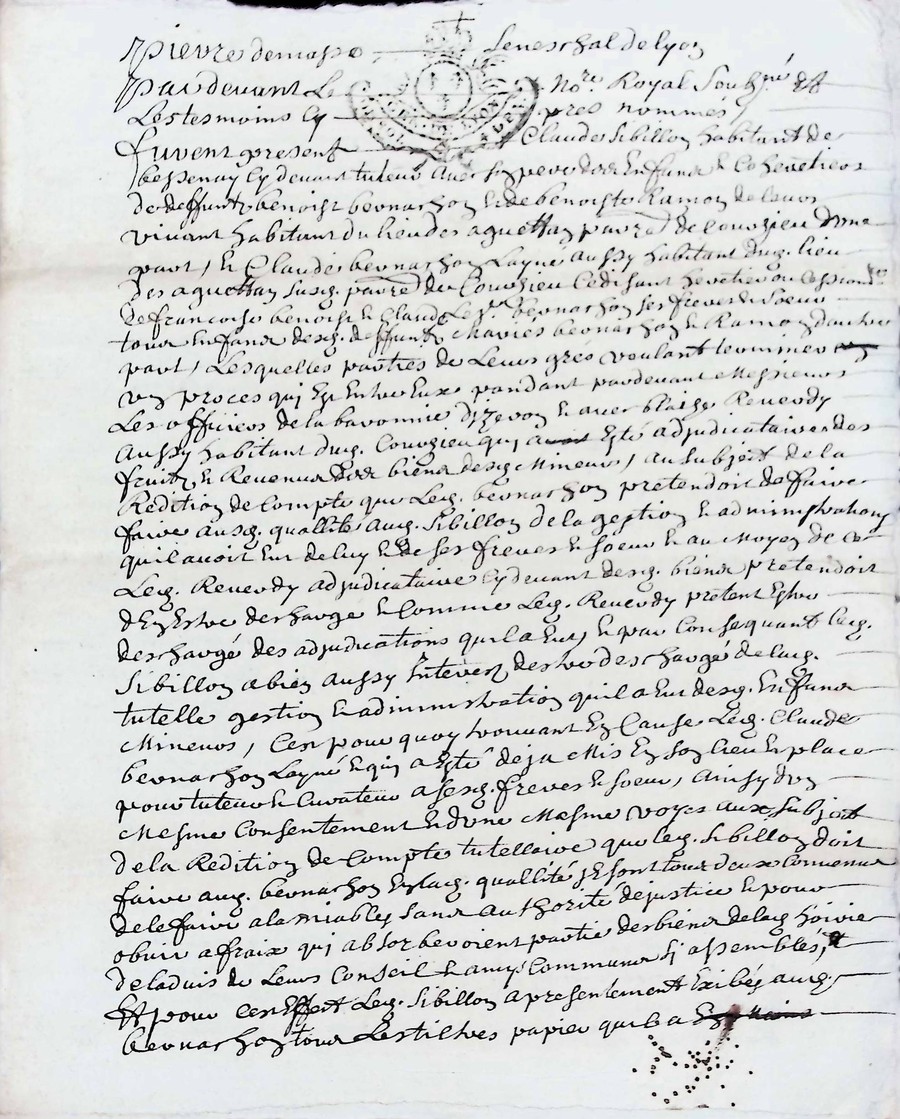 pierre demasso seneschal de lyon
Pardevant Le no.re Royal Soubz.né Et
Les tesmoins Cy pres nommés
furent present Claude Sibillon habitant de
bessenay Cy devant tuteur avec son pere des Enfans & Coheretiers
de deffuntz benoist bernachon & de benoiste Ramon de leurs
vivant habitant du lieu des aguettan parre de Courzieu d'une
part, & Claude bernachon Layné aussy habitant dud. lieu
des aguettan susd. parre de Courzieu Cedisant heretier ou Cessionre
de francoise benoist & Claude bernachon ses freres & soeur
tous Enfans desd. deffuntz Maries bernachon & Ramon d'autre
part, Lesquelles parties de Leurs grés voulant terminer
un proces qui Est Entre Eux pandant pardevant Messieurs
Les officiers de la baronnie d'yzeron & avec blaise Reverdy
Aussy habitant dud. Courzieu qui a Esté adjudicataire des
fruitz & Revenus des biens desd. Mineurs, au subject de la
Redition de Compte que Led. bernachon pretendoit de faire
faire ausd. quallité aud. Sibillon de la gestion & administration
qu'il avoit Eut de luy & de ses freres & soeur & au Moyen de ce
Led. Reverdy adjudicataire Cy devant desd. biens pretendoit
d'En Estre descharge & Comme Led. Reverdy pretent Estre
deschargé des adjudications qu'il a Eut, & par Consequant Led.
Sibillon a bien aussy Interest destre deschargé de lad.
tutelle gestion & administration qu'il a Eut desd. Enfans
Mineurs, C'est pourquoy trouvant En Cause Led. Claude
bernachon Layné & qui a Esté deja Mis En son lieu & place
pour tuteur & Curateur a sesd. freres & soeur, ainsy d'un
Mesme Consentement & d'une Mesme voyes aux subject
de la Redition de Compte tutellaire que led. Sibillon doit
faire aud. bernachon En lad. quallité se sont tous deux Convenus
de le faire a la miables sans authorité de justice & pour
obvier a fraix qui absorberoient partie des biens de lad. hoirie
de ladvis de Leurs Conseil & amys Communs Sy assemblés, &
Et pour Cest Effect Led. Sibillon a presentement Exibés aud.
bernachon tous Les tiltres papier qu'il a